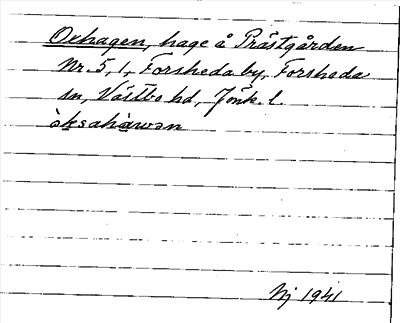 Oxhagen, hage å Prästgården
Nr. 5, 1, Forsheda by, Forsheda
sn, Västbo hd, Jönk. l.
òksahàwən
Nj 1941